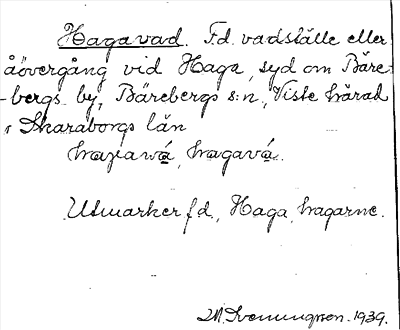 Hagavad. F.d. vadställe eller
åövergång vid Haga, syd om Bäre-
-bergs by, Bärebergs s:n, Viste härad
i Skaraborgs län
hagavá.
Utmarker f.d., Haga hagarne.
1939.